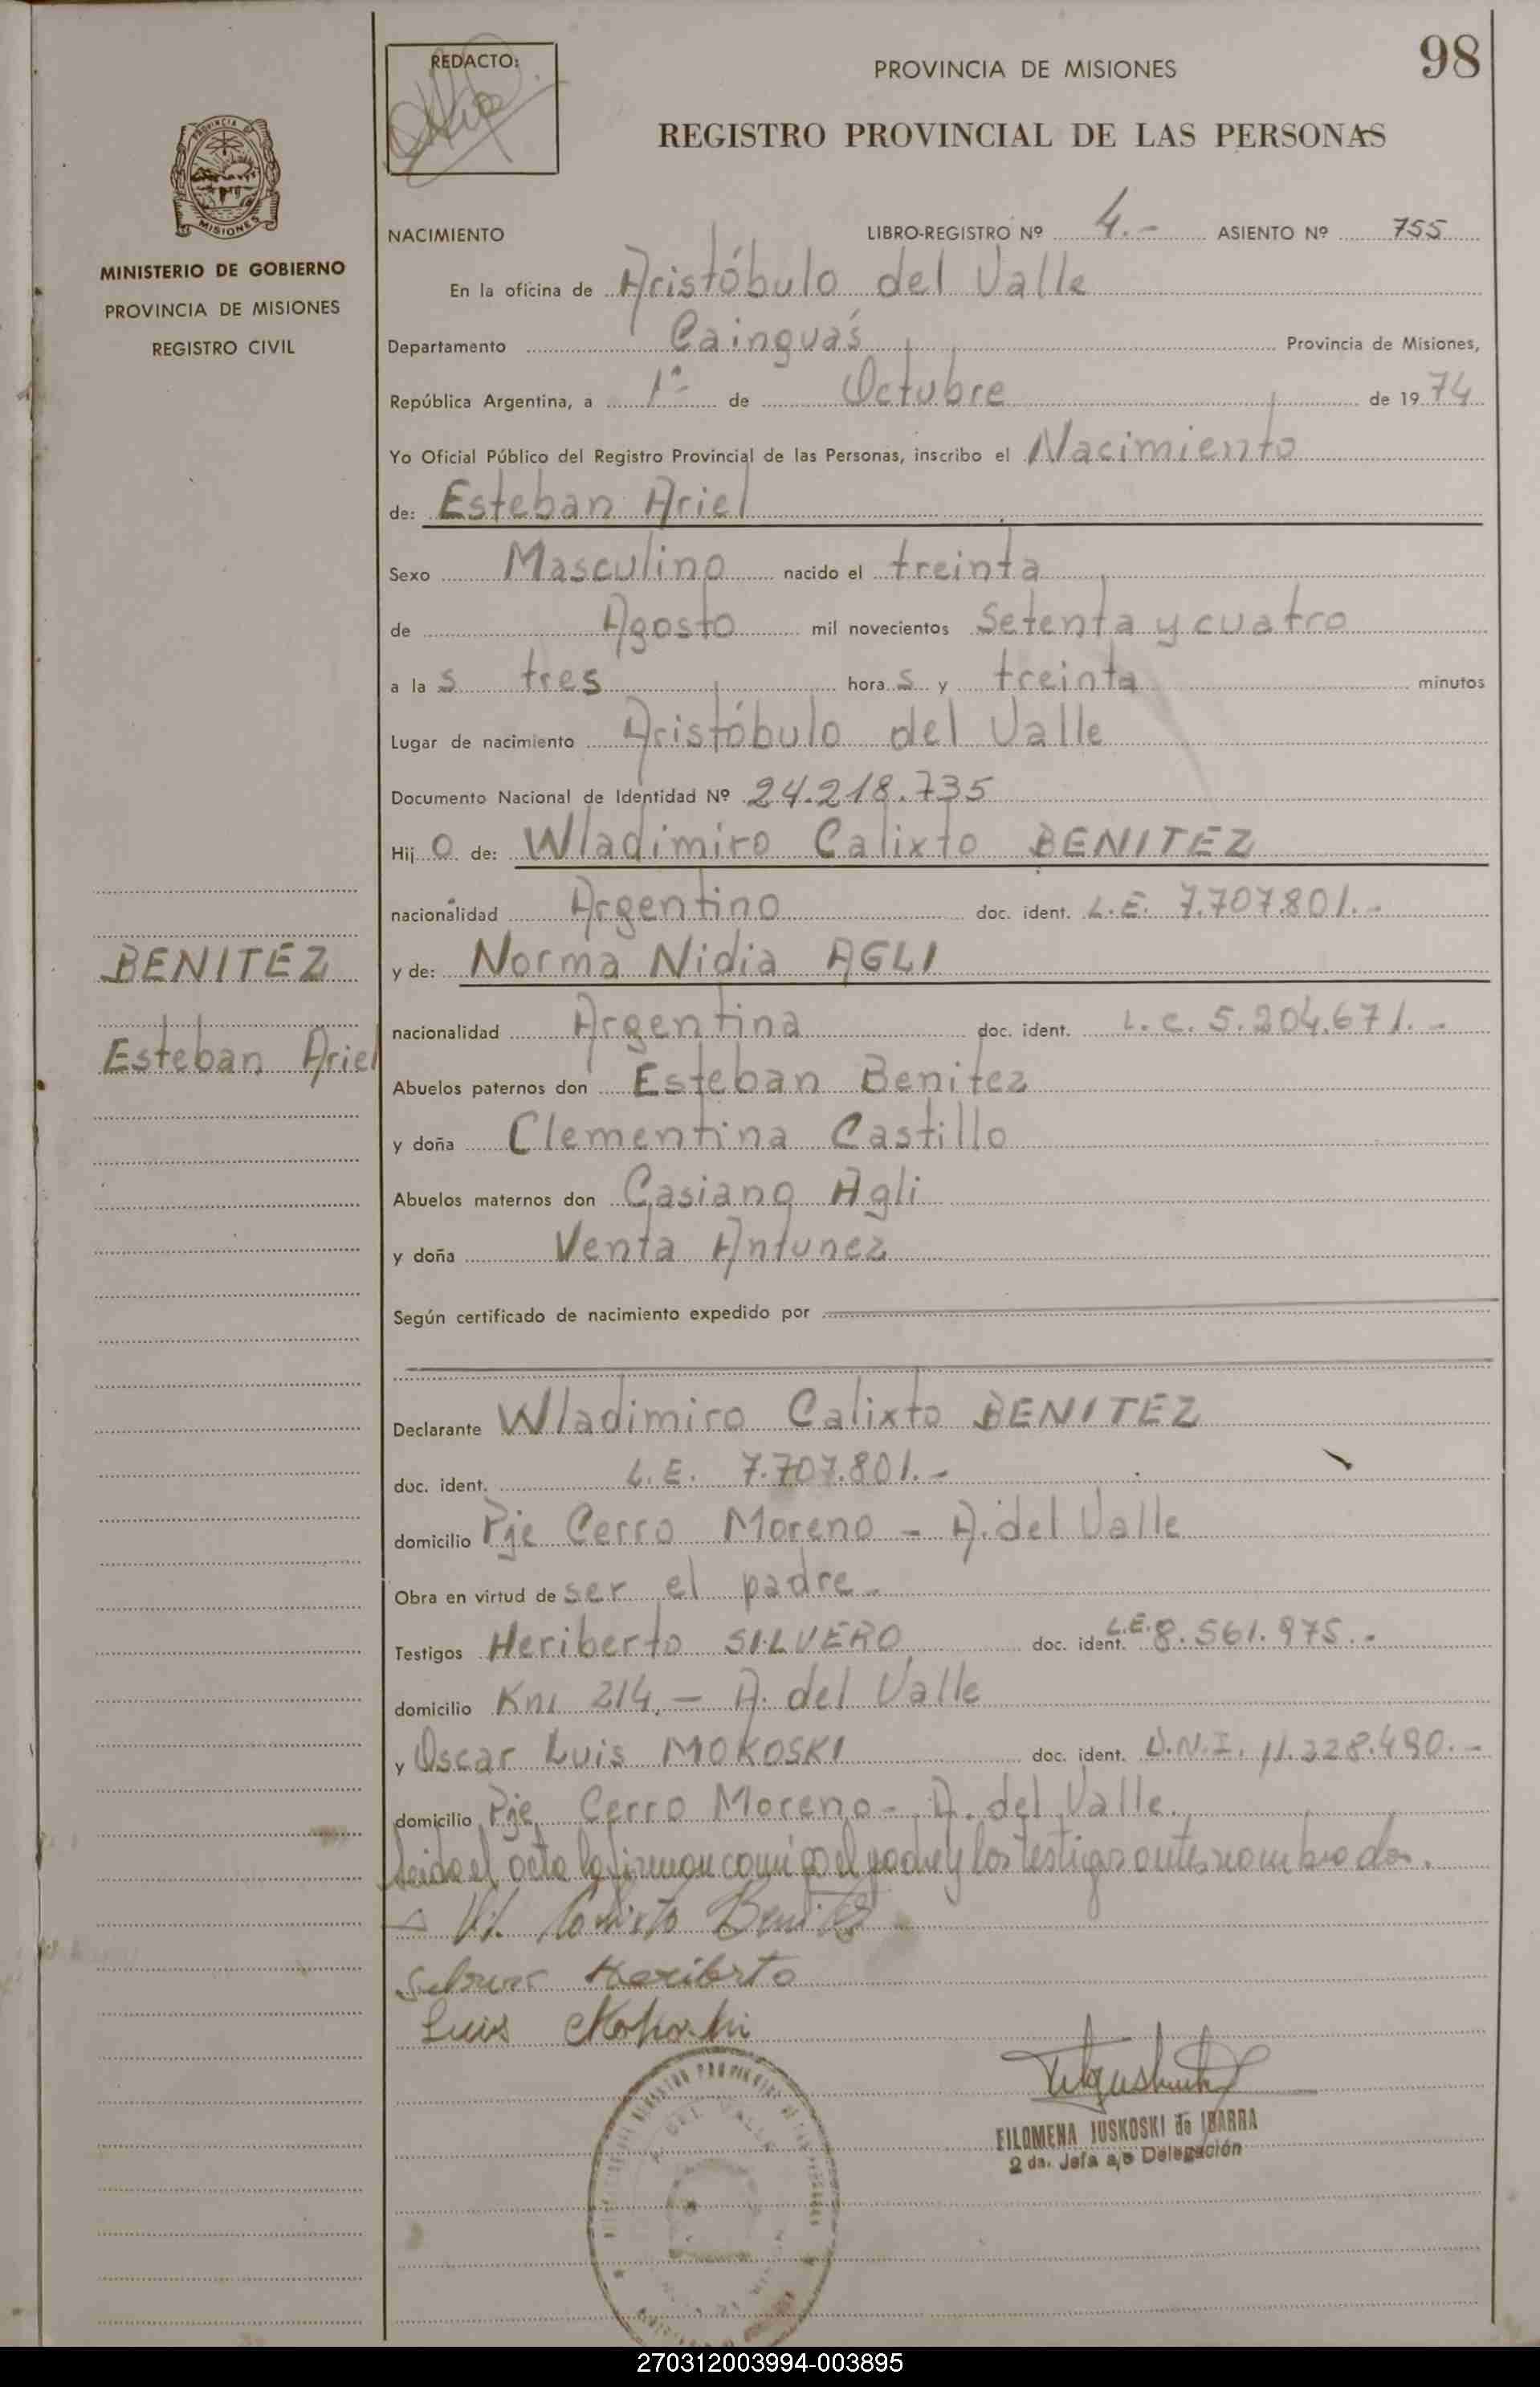 98
REDACTO:
PROVINCIA DE MISIONES
REGISTRO PROVINCIAL DE LAS PERSONAS
PROVINCIA DE
MISIONES
MINISTERIO DE GOBIERNO
PROVINCIA DE MISIONES
REGISTRO CIVIL
NACIMIENTO LIBRO-REGISTRO Nº 4.- ASIENTO Nº 755
En la oficina de Aristóbulo del Valle
Departamento Cainguás Provincia de Misiones,
República Argentina, a 1º de Octubre de 1974
Yo Oficial Público del Registro Provincial de las Personas, inscribo el Nacimiento
de: Esteban Ariel
Sexo Masculino nacido el treinta
de Agosto mil novecientos Setenta y cuatro
a las tres horas y treinta minutos
Lugar de nacimiento Aristóbulo del Valle
Documento Nacional de Identidad Nº 24.218.735
Hijo de: Wladimiro Calixto BENITEZ
nacionalidad Argentino doc. ident. L.E. 7.707.801.-
BENITEZ
y de: Norma Nidia AGLI
nacionalidad Argentina doc. ident. L.C. 5.204.671.-
Esteban Ariel
Abuelos paternos don Esteban Benitez
y doña Clementina Castillo
Abuelos maternos don Casiano Agli
y doña Venta Antunez
Según certificado de nacimiento expedido por
Declarante Wladimiro Calixto BENITEZ
doc. ident. L.E. 7.707.801.-
domicilio Pje Cerro Moreno - A. del Valle
Obra en virtud de ser el padre-
Testigos Heriberto SILVERO doc. ident. L.E. 8.561.975.-
domicilio Km 214.- A. del Valle
y Oscar Luis MOKOSKI doc. ident. D.N.I. 11.228.490.-
domicilio Pje Cerro Moreno- A. del Valle.
Leido el acta la firman conmigo el padre y los testigos antes nombrados.
Calixto Benitez
Silvero Heriberto
Luis Mokoski
FILOMENA JUSKOSKI de IBARRA
2 da. Jefa a/c Delegación
DEL VALLE
270312003994-003895